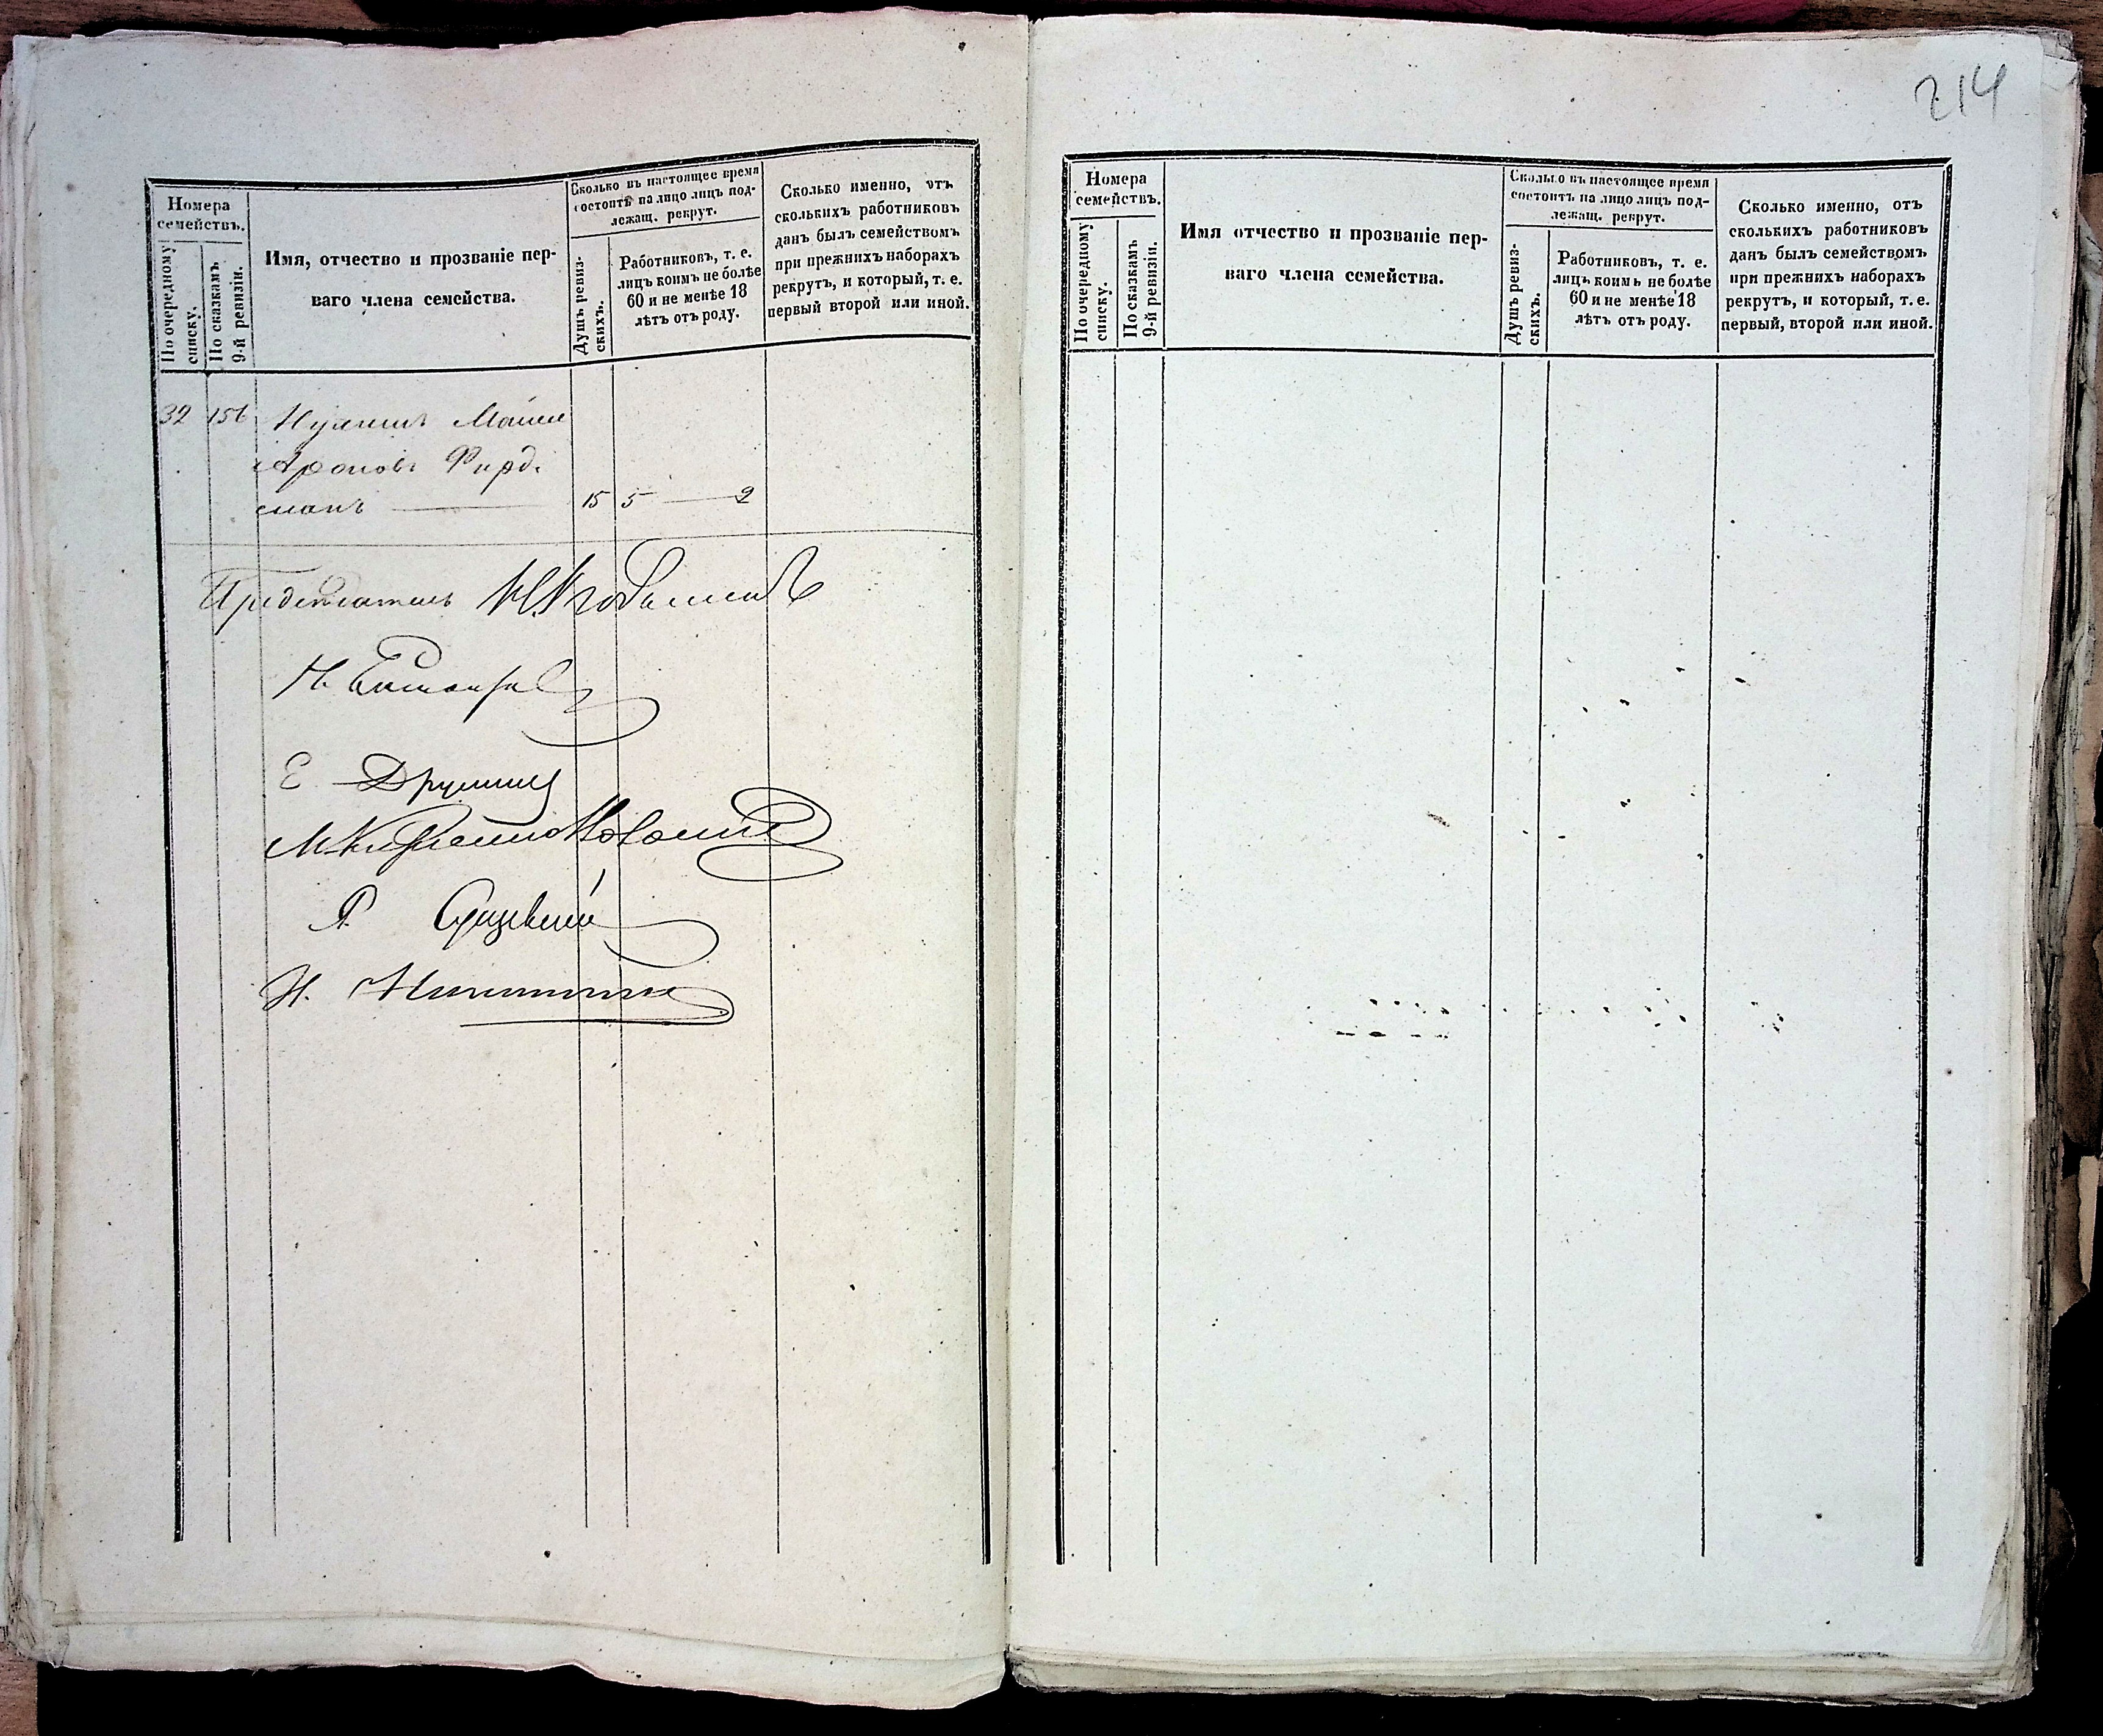 214
Номера
семействъ.
По очередному
списку.
По сказкамъ
9-й ревизіи.
Имя, отчество и прозваніе пер-
ваго члена семейства.
Сколько въ настоящее время
состоитъ на лицо лицъ под-
лежащ. рекрут.
Душъ ревиз-
скихъ.
Работниковъ, т. е.
лицъ коимъ не болѣе
60 и не менѣе 18
лѣтъ отъ роду.
Сколько именно, отъ
сколькихъ работниковъ
данъ былъ семействомъ
при прежнихъ наборахъ
рекрутъ, и который, т. е.
первый второй или иной.
32 156
Ароновъ
манъ 15 5 — 2
Предсѣдатель
Е
Н. Никитинъ
Номера
семействъ.
По очередному
списку.
По сказкамъ
9-й ревизіи.
Имя отчество и прозваніе пер-
ваго члена семейства.
Сколько въ настоящее время
состоитъ на лицо лицъ под-
лежащ. рекрут.
Душъ ревиз-
скихъ.
Работниковъ, т. е.
лицъ коимъ не болѣе
60 и не менѣе 18
лѣтъ отъ роду.
Сколько именно, отъ
сколькихъ работниковъ
данъ былъ семействомъ
при прежнихъ наборахъ
рекрутъ, и который, т. е.
первый, второй или иной.